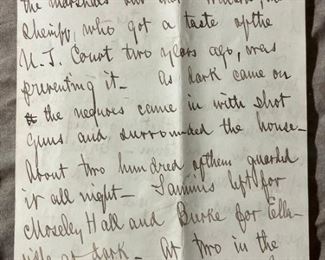 the marshals
sheriff, who got a taste of the
U.S. Court two years ago, was
preventing it — as dark came on
the negroes came in with shot
guns and surrounded the house —
About two hundred of them guarded
it all night — left for
Moseley Hall and Burke for Ella-
ville at dark — At two in the